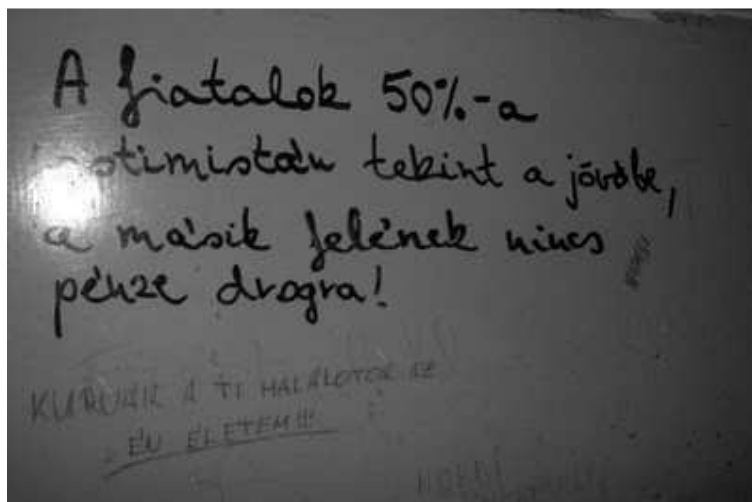 A fiatalok 50%-a
optimistán tekint a jövőbe,
a másik felének nincs
pénze drogra!
KURVÁK A TI HALÁLOTOK AZ
ÉN ÉLETEM!!!